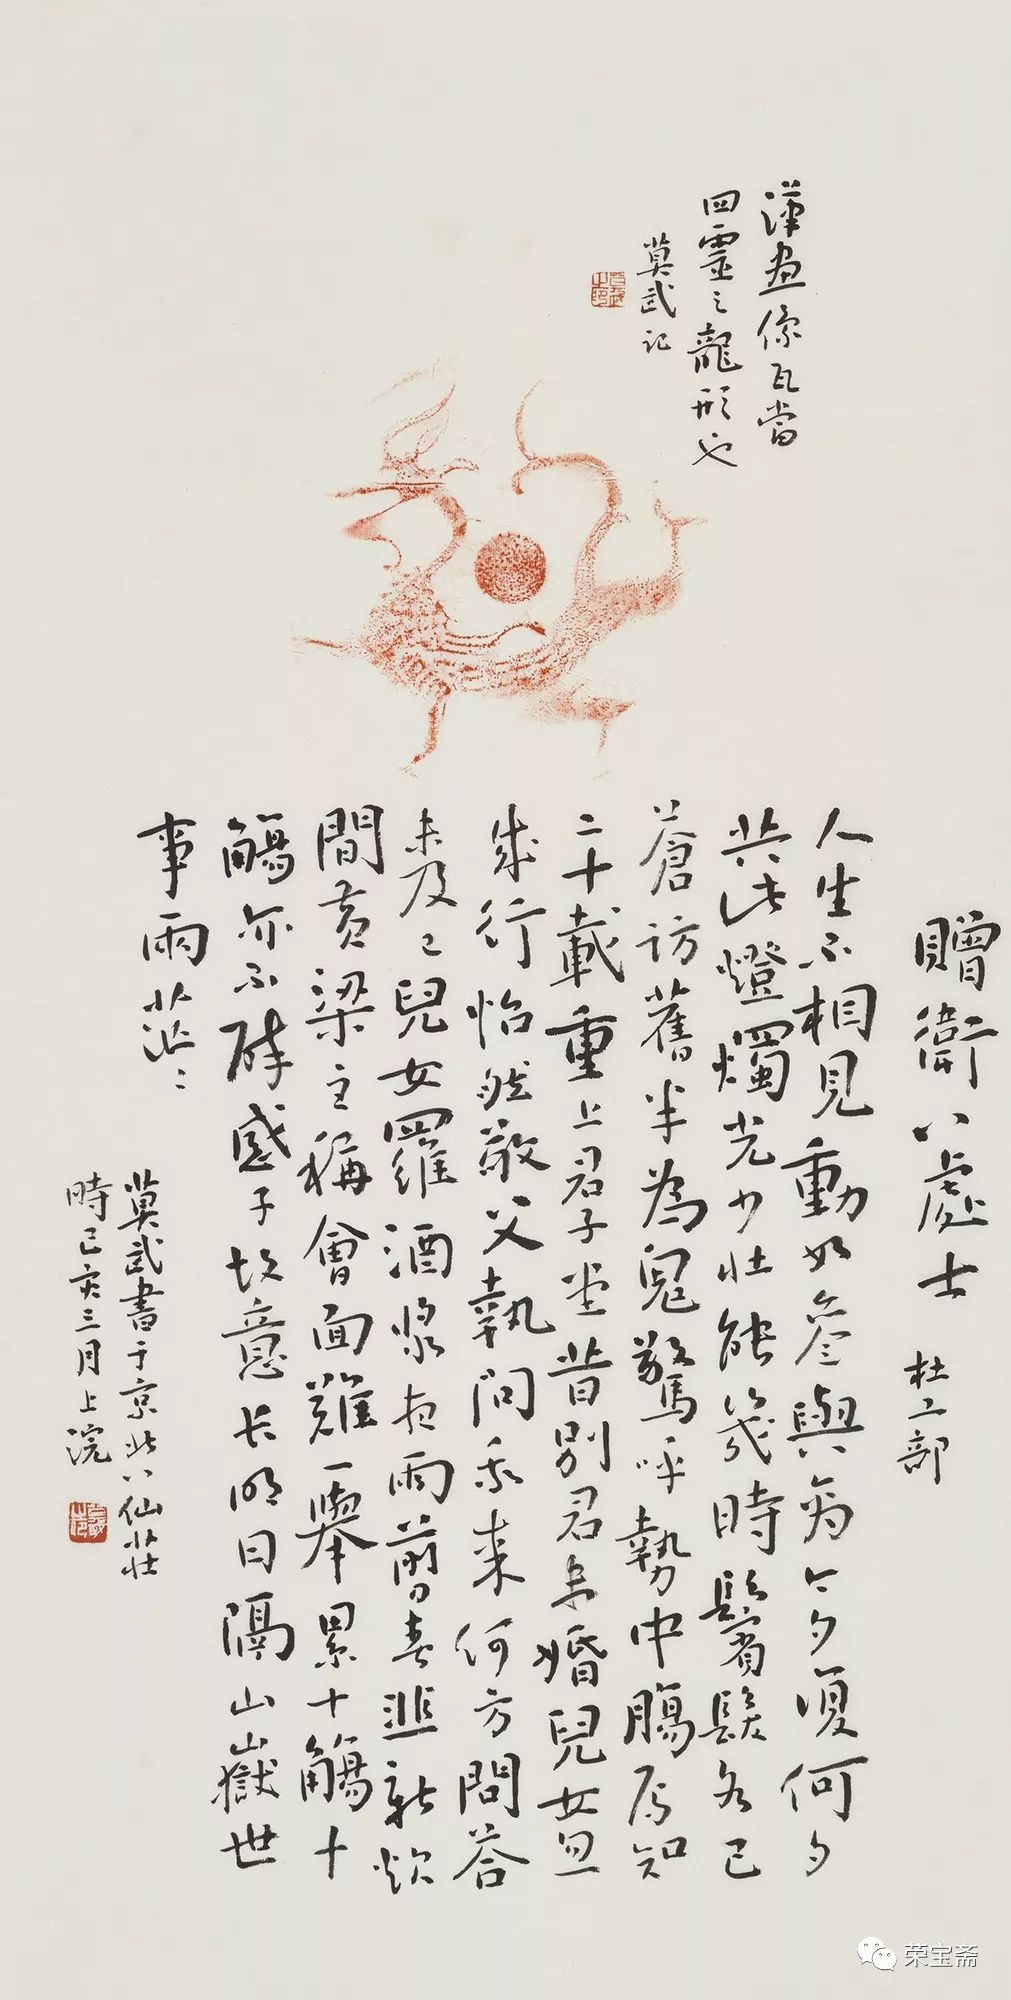 漢畫像瓦當
四靈之龍形也
莫武記
贈衛八處士 杜工部
人生不相見動如參與商今夕復何夕
共此燈燭光少壯能幾時鬢髮各已
蒼訪舊半為鬼驚呼勢中腸焉知
二十載重上君子堂昔別君未婚兒女忽
成行怡然敬父執問我來何方問答
未及已兒女羅酒漿夜雨剪春韭新炊
間黃梁主稱會面難一舉累十觴十
觴亦不醉感子故意長明日隔山嶽世
事兩茫〻
莫武書于京北八仙莊
時己亥三月上浣
荣宝斋